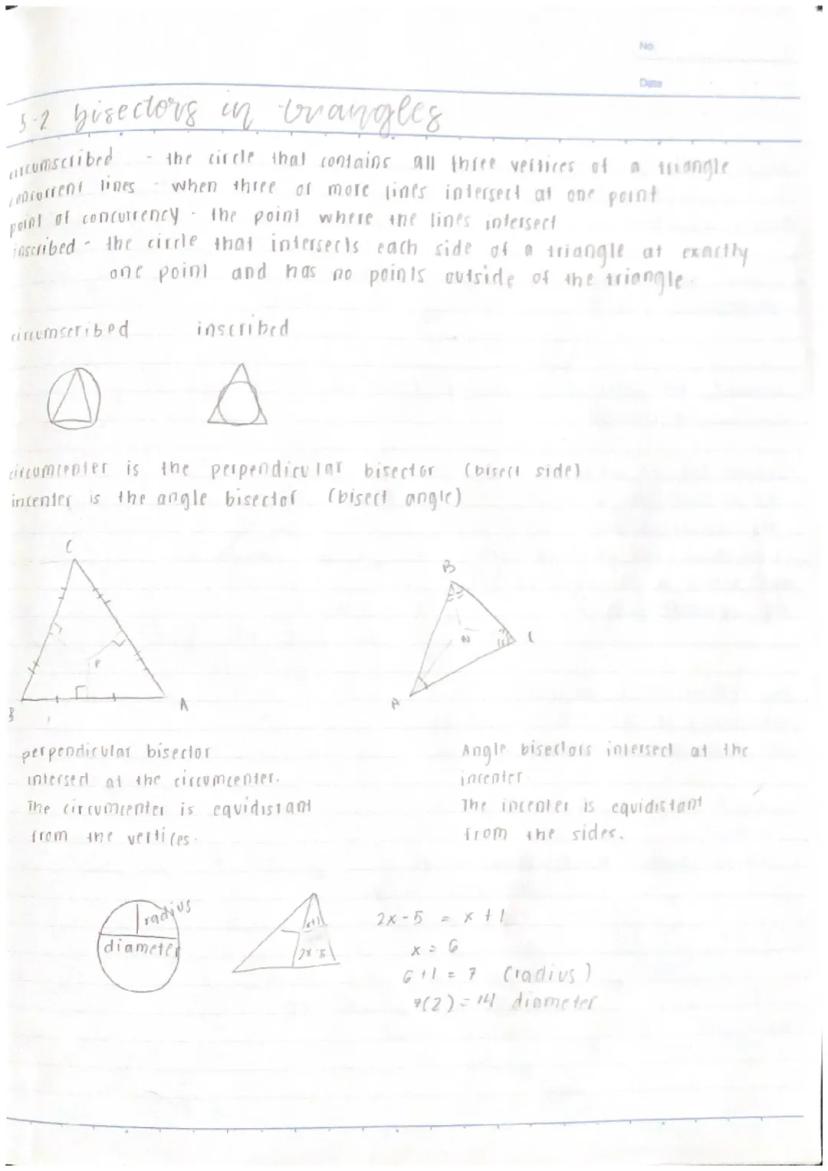 No
Date
5-2 bisectors in triangles
circumscribed - the circle that contains all three vertices of a triangle
concurrent lines - when three or more lines intersect at one point
point of concurrency - the point where the lines intersect
inscribed - the circle that intersects each side of a triangle at exactly
one point and has no points outside of the triangle.
circumscribed inscribed
circumcenter is the perpendicular bisector (bisect side)
incenter is the angle bisector (bisect angle)
C
B
P
N
C
B
A
A
perpendicular bisector
intersect at the circumcenter.
The circumcenter is equidistant
from the vertices.
Angle bisectors intersect at the
incenter
The incenter is equidistant
from the sides.
radius
diameter
x+1
2x-5
2x-5 = x+1
x = 6
6+1 = 7 (radius)
7(2) = 14 diameter